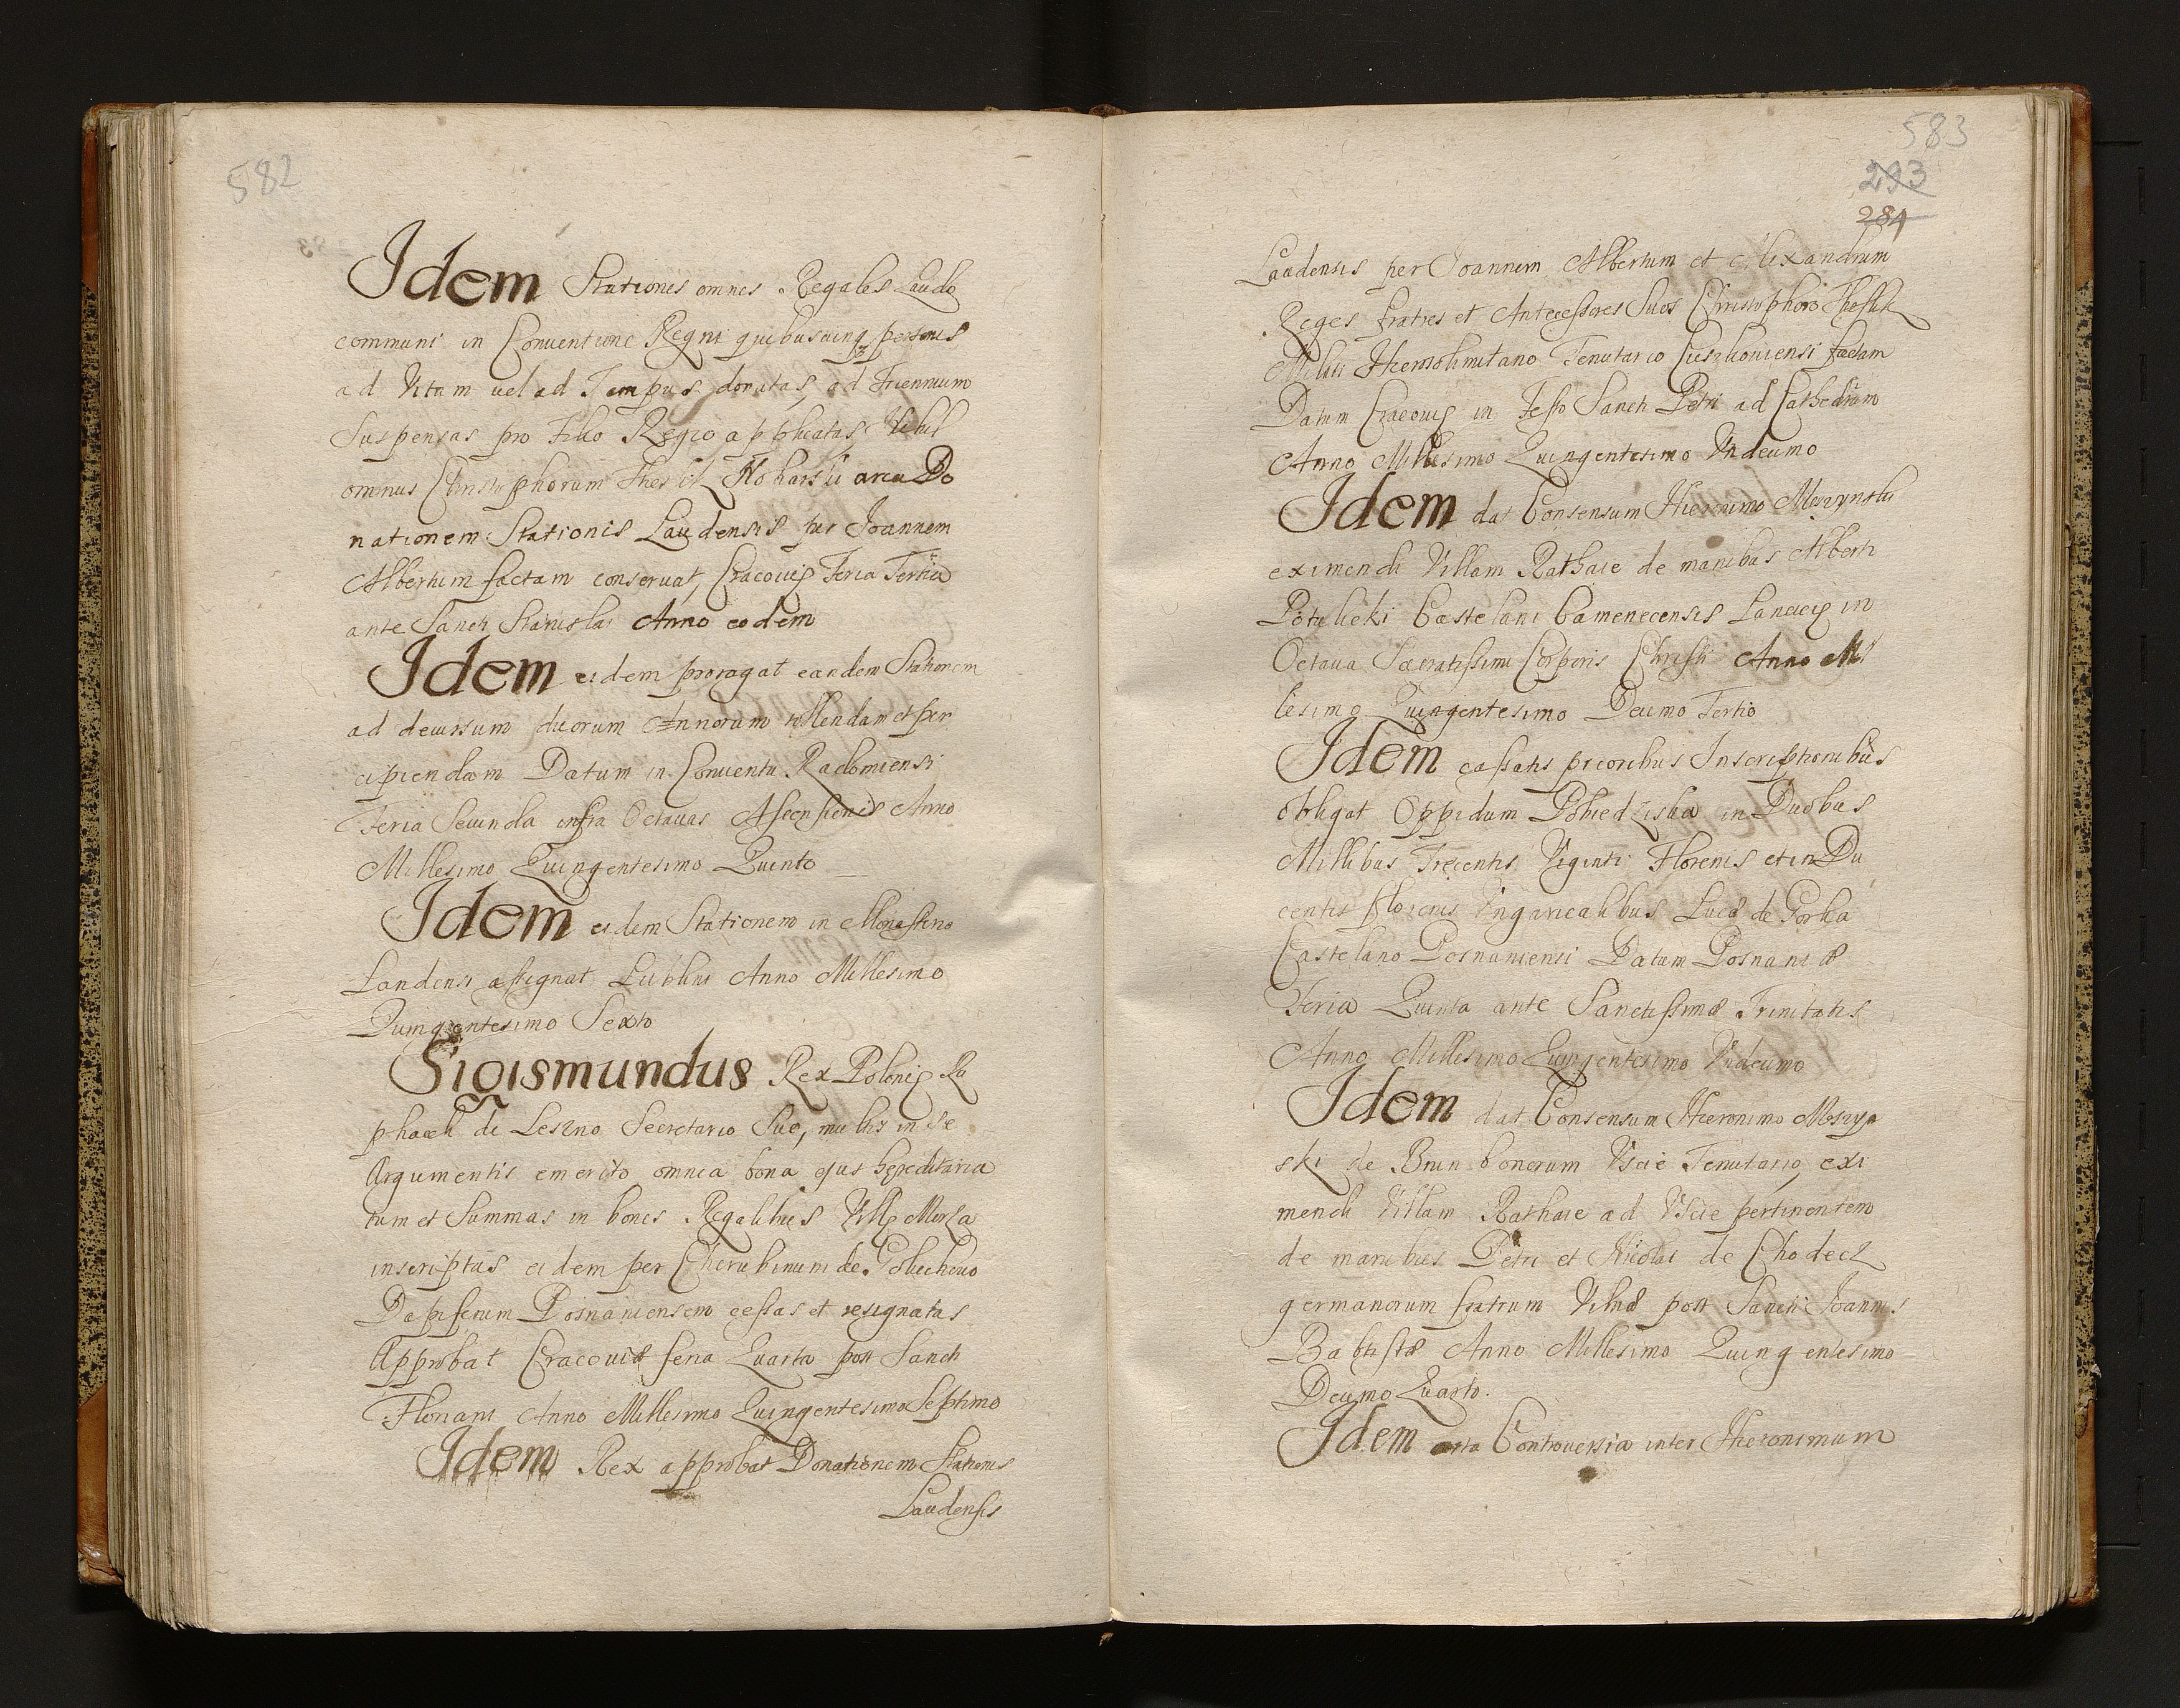 582
Idem Stationes omnes Regales Laudo
communi in Conuentione Regni quibuscunq personis
ad Vitam uel ad Tempus donatas, ad Triennium
Suspensas pro Fisco Regio applicatas Nihil
ominus Christophorum circa Do
nationem Stationis Laudensis per Joannem
Albertum factam conseruat, Cracouię Feria Tertia
ante Sancti Stanislai Anno eodem
Idem eidem prorogat eandem Stationem
ad decursum duorum Annorum tollendam et per
cipiendam Datum in Conuentu Radomiensi
Feria Secunda infra Octauas Ascensionis Anno
Millesimo Quingentesimo Quinto
Idem eidem Stationem in Monasterio
Landensi assignat Lublini Anno Millesimo
Quingentesimo Sexto
Sigismundus Rex Polonię Ra
phaeli de Leszno Secretario Suo, multis in se
Argumentis emerito omnia bona ejus hereditaria
tum et Summas in bonis Regalibus Villę
inscriptas eidem per Cherubinum de
Dapiferum Posnaniensem cessas et resignatas
Approbat Cracouiæ feria Quarta post Sancti
Floriani Anno Millesimo Quingentesimo Septimo
Idem Rex approbat Donationem Stationis
Laudensis
583
293
284
Laudensis per Joannem Albertum et Alexandrum
Reges fratres et Antecessores Suos Christophoro
Militi Hierosolimitano Tenutario factam
Datum Cracouię in Festo Sancti Petri ad Cathedram
Anno Millesimo Quingentesimo Undecimo
Idem dat Consensum Hieronimo Moszynski
eximendi Villam Rathaie de manibus Alberti
Potulicki Castelani Camenecensis Lancicię in
Octaua Sacratissimi Corporis Christi Anno Mil
lesimo Quingentesimo Decimo Tertio
Idem cassatis prioribus Inscriptionibus
obligat Oppidum Pobiedziska in Duobus
Millibus Trecentis Viginti Florenis et in Du
centis florenis Ungaricalibus Lucæ de Gorka
Castelano Posnaniensi Datum Posnaniæ
Feria Quinta ante Sanctissimæ Trinitatis
Anno Millesimo Quingentesimo Undecimo
Idem dat Consensum Hieronimo Moszyn
ski de Bnin bonorum Uscie Tenutario, exi
mendi Villam Rathaie ad Uscie pertinentem
de manibus Petri et Nicolai de Chodecz
germanorum fratrum Vilnæ post Sancti Joannis
Babtistæ Anno Millesimo Quingentesimo
Decimo Quarto.
Idem orta Controuersia inter Hieronimum